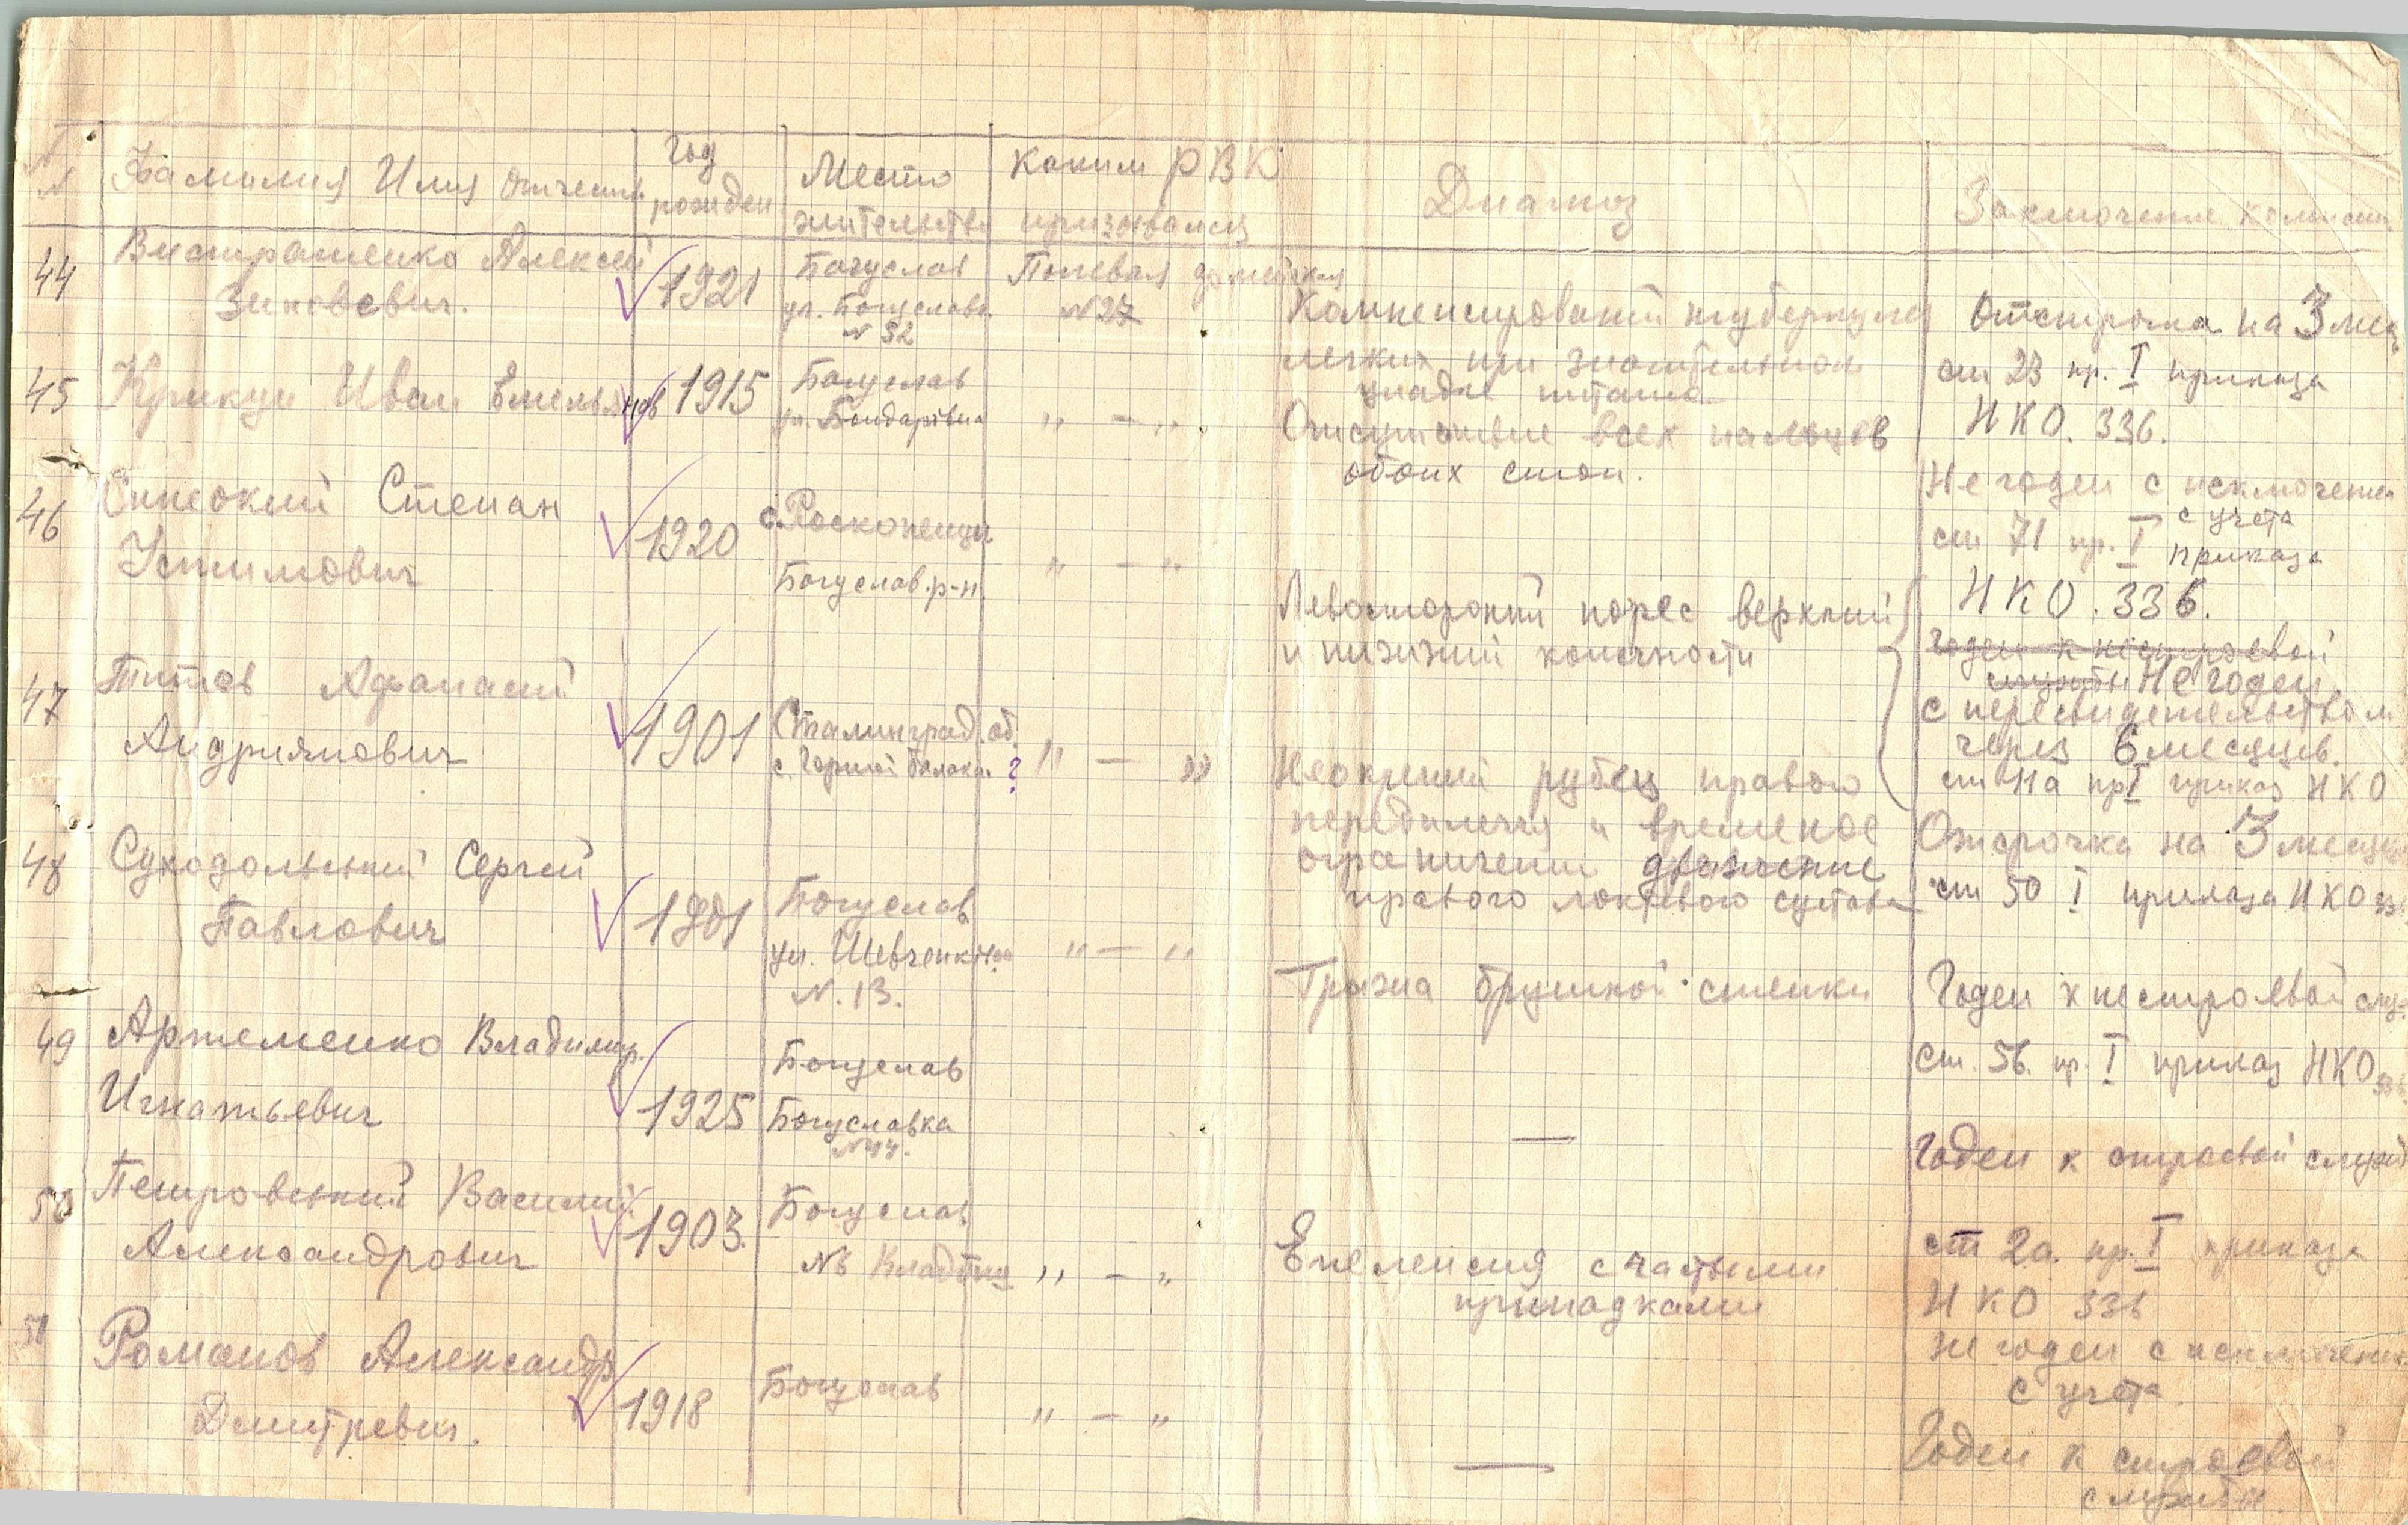 №№ Фамилия Имя Отчество Год рожден Место жительства Каким РВК призывался Диагноз Заключение комиссии
44 Вистратенко Алексей
Зиновевич. 1921 Богуслав
ул. Богуславк.
N 32 Полевая
N27 Компенсированый туберкулез
легких при значительном
упадке питания Отстрочка на 3 мес.
ст 23 пр. I приказа
НКО. 336.
45 Крикун Иван Емельянов 1915 Богуслав
ул. Бондарівна " — " Отсутствие всех пальцев
обоих стоп. Не годен с исключением
с учета
ст 71 пр. I приказа
НКО. 336.
46 Степан
Устимович 1920 с. Роскопенци
Богуслав. р-н. " — " Левосторонний порес верхний
и нижний конечности годен к нестроевой
службы Не годен
с пересвидетельством
через 6 месяцев.
пр I приказ НКО
47 Титов Афанасий
Андриянович 1901 Сталинград. об.
с. Горний Балакл. ? " — " Неокрепший рубец правого
передплечья и временое
ограничении движение
правого локтевого сустава Отсрочка на 3 месяца
ст 50 I приказа НКО 336
48 Суходольский Сергей
Павлович 1901 Богуслав
ул. Шевченківс.
N. 13. " — " Грыжа брушной стенки Годен к нестроевой служ.
ст. 56. пр. I приказ НКО 336.
49 Артеменко Владимир.
Игнатьевич 1925 Богуслав
Богуславка
N44. — Годен к строевой службе
50 Петровський Василий
Александрович 1903. Богуслав
№ " — " Епелепсия с частыми
припадками ст 2а. пр. I приказа
НКО 336
не годен с исключением
с учета.
51 Романов Александр
Дмитревич. 1918 Богуслав " — " — Годен к строевой
службы.